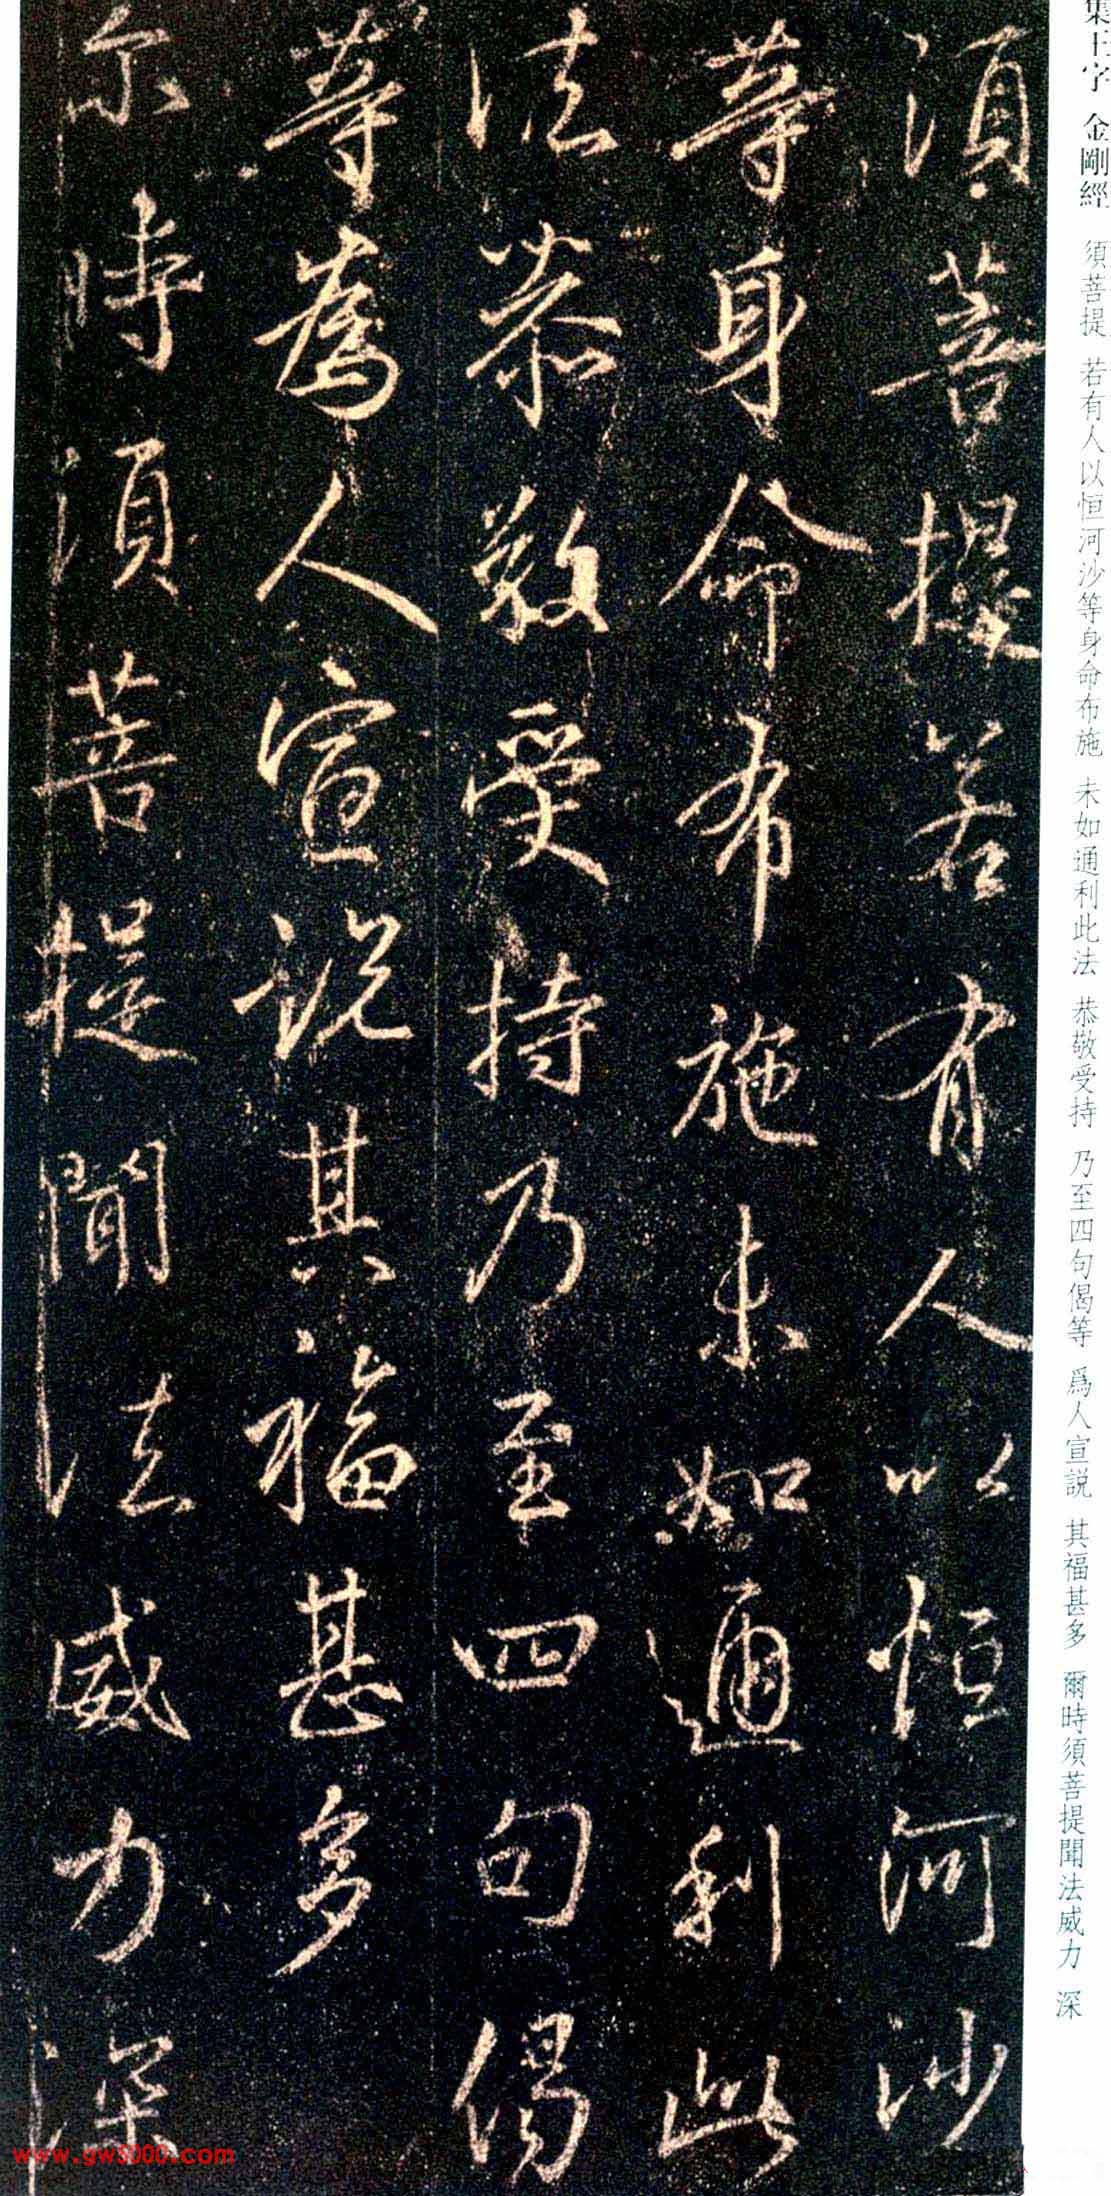 集王字 金剛經 須菩提 若有人以恒河沙等身命布施 未如通利此法 恭敬受持 乃至四句偈等 爲人宣説 其福甚多 爾時須菩提聞法威力 深
須菩提若有人以恒河沙
等身命布施未如通利此
法恭敬受持乃至四句偈
等為人宣說其福甚多
尔時須菩提聞法威力深
www.gw5000.com